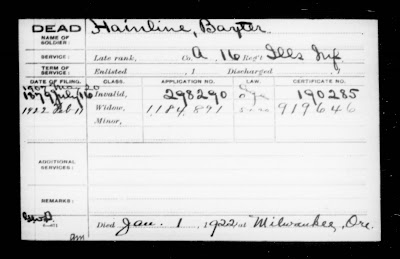 DEAD Hainline, Baxter
NAME OF SOLDIER:
SERVICE: Late rank, Co. A, 16 Reg't Ills Inf
TERM OF SERVICE: Enlisted , 1 Discharged , 1
DATE OF FILING. CLASS. APPLICATION NO. LAW. CERTIFICATE NO.
1907
1879 July 16 Invalid, 298290 190285
1922 Feb 11 Widow, 1,184,891 919646
Minor,
ADDITIONAL SERVICES:
REMARKS:
Died Jan. 1, 1922 at Milwaukee, Ore.